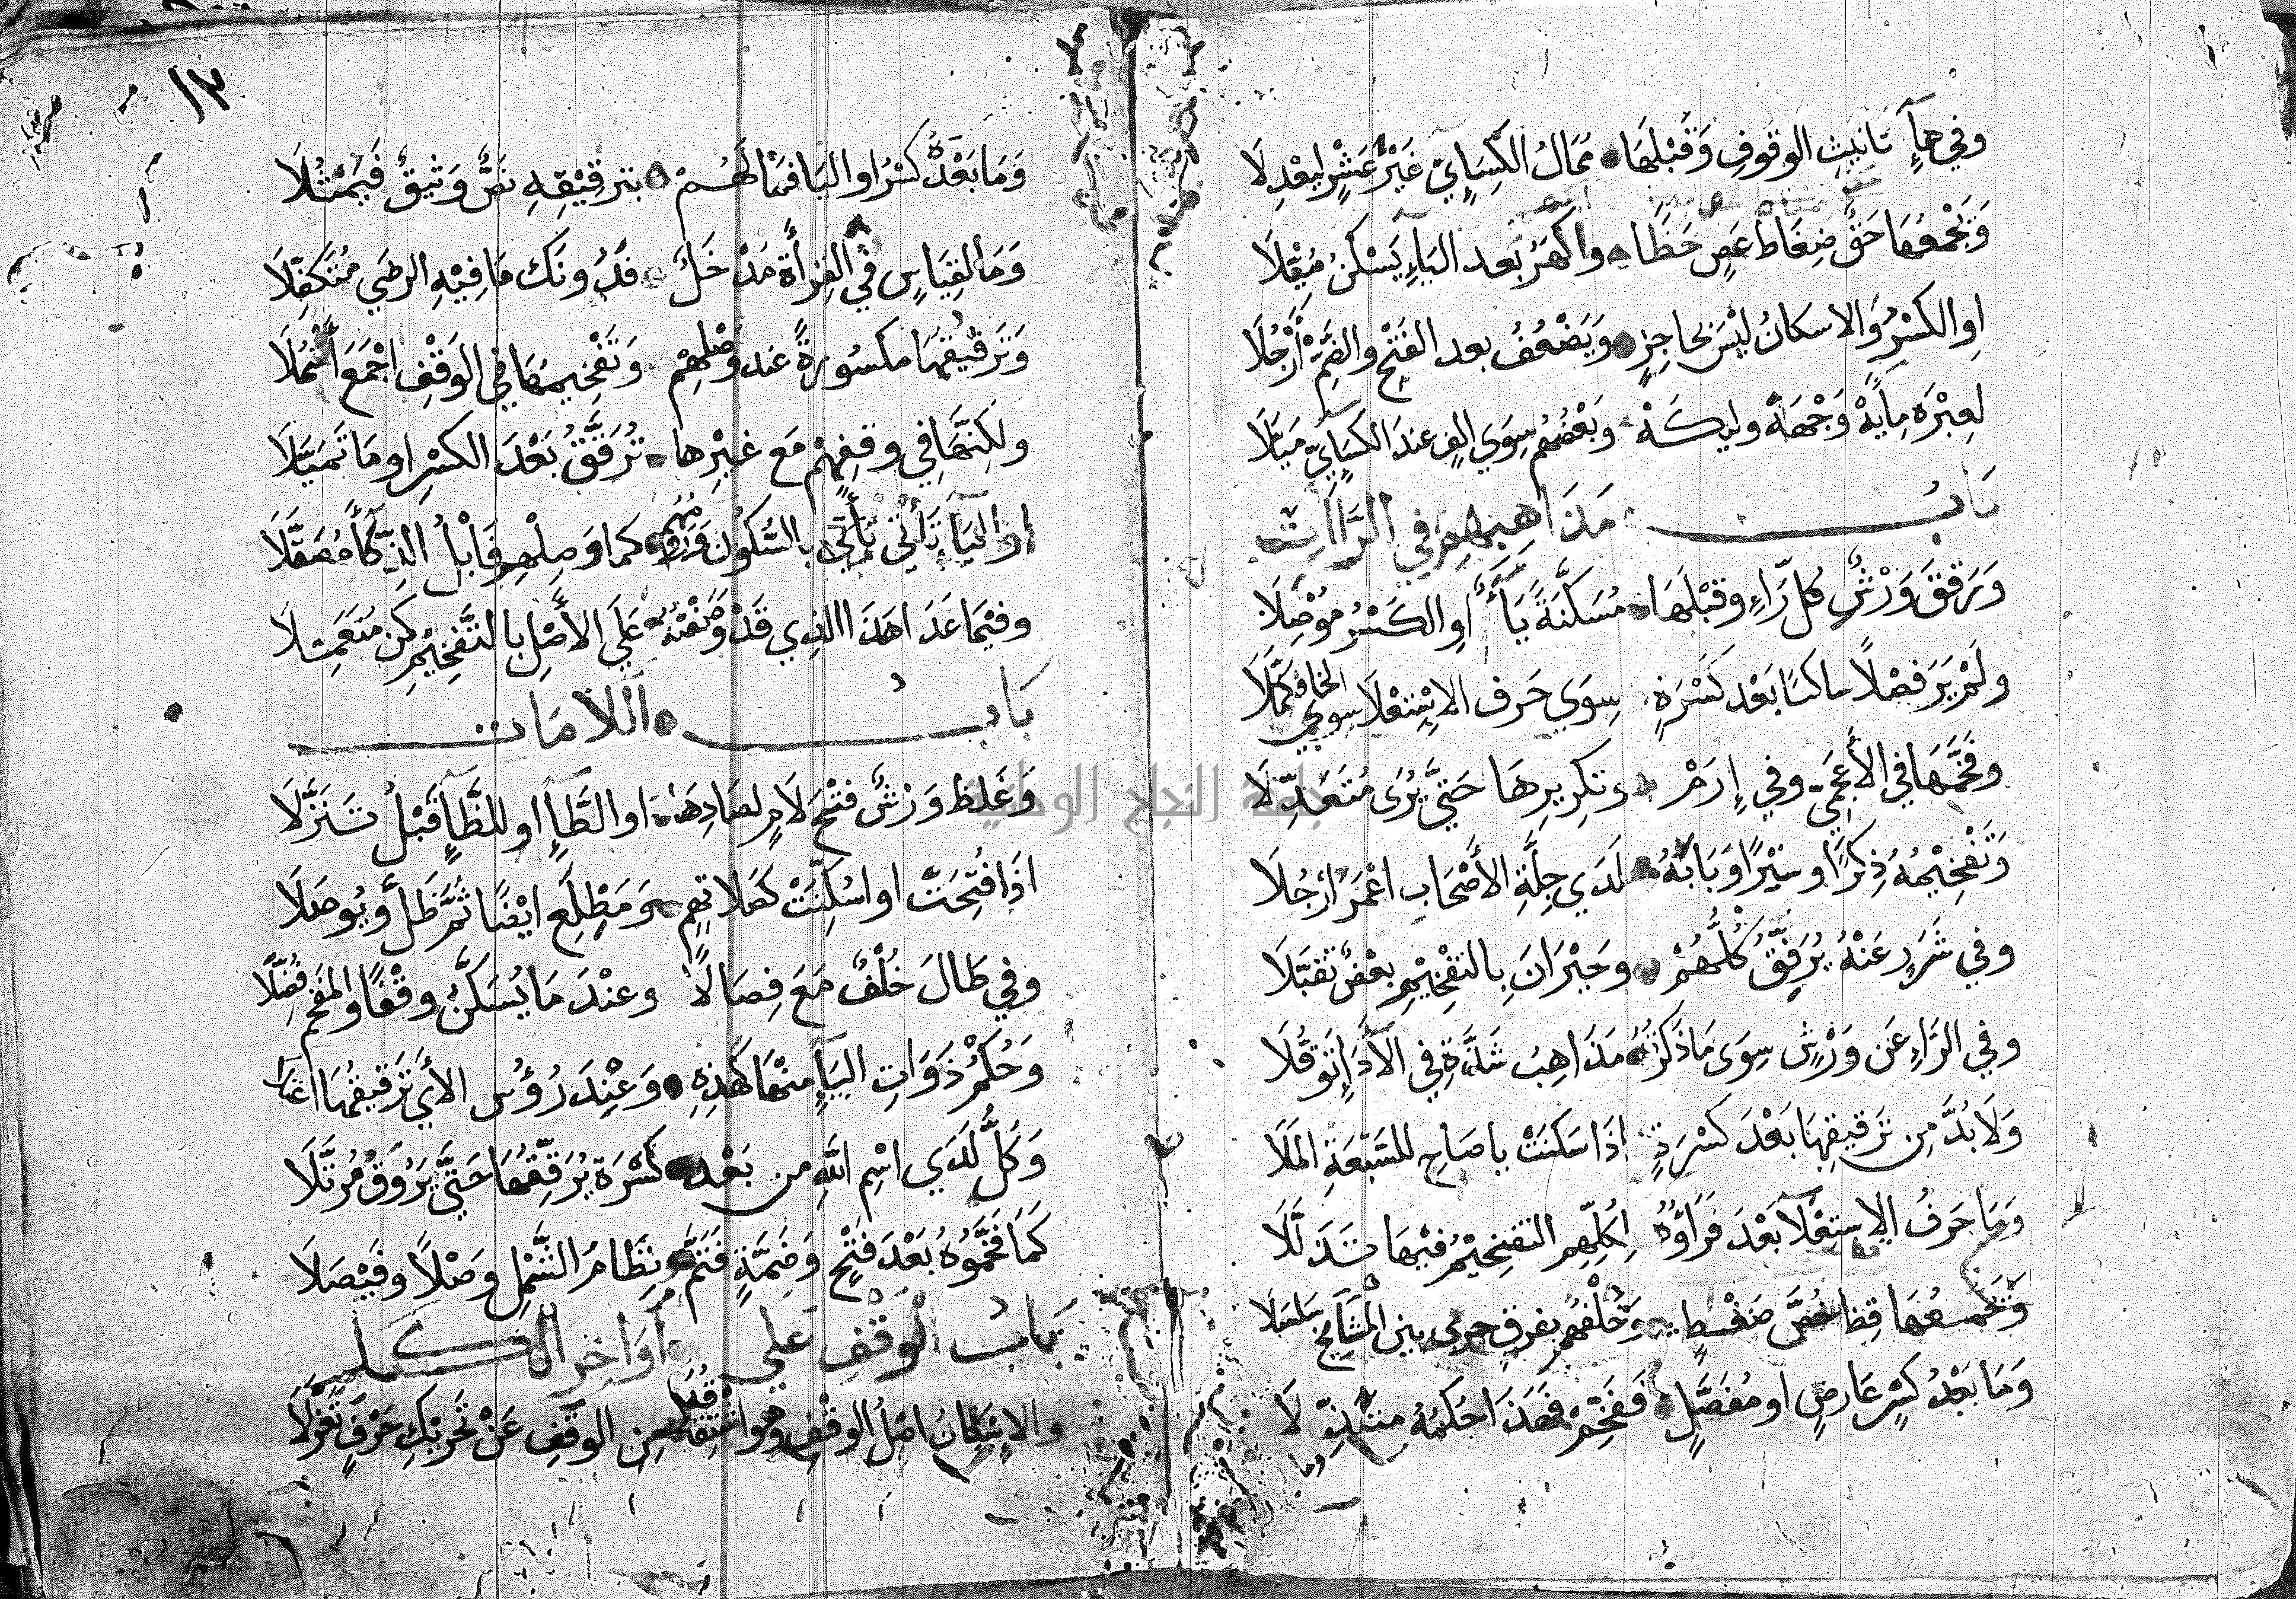 وفي هآءِ تانيث الوقوفِ وَقَبْلَهَا مُمَالُ الكِسَايِيّ غَيْرَ عَشْرٍ ليَعْدِلَا
وَيَجْمَعُهَا حَقٌّ ضِغَاطُ عَصٍ خَظَا واكْهَرُ بَعد اليَاءِ يَسْكنُ مُيِّلَا
اوِ الكسْرُ وَالاسكانُ ليْسَ بحاجِزٍ وَيَضْعُفُ بعد الفَتْحِ والضَمِّ أَرْجُلَا
لعِبْرَه مِايَهْ وَجْهَهْ وليكَهْ وَبَعْضُهُم سِوَي الفٍ عندَ الكسَايِيّ مَيَّلَا
بَابُ مَذَاهِبِهِم في الرَّاآتِ
وَرَقَّقَ وَرْشٌ كُل رَّاءٍ وقبْلَهَا مُسَكَّنَةً يَآءٌ اوِ الكَسْرُ مُوْصَلَا
ولَمْ يَرَ فصْلًا ساكنًا بَعْد كَسْرَةٍ سِوَي حَرف الاِسْتعْلَا سوي الخا فكمَّلَا
وفَخَّمَهَا في الأعجميّ وفي إِرَمْ وتكرِيرِهَا حَتّيَ يُرَى مُتَعَدِّلَا
وَتَفْخِيْمُهُ ذِكرًا وسِتْرًا وَبَابَهُ لَدَي جِلَّةِ الأَصْحَابِ اعْمَرُ ارْجُلَا
وفي شَرَرٍ عَنْهُ يُرَقِّقُ كُلُّهُمْ وحَيْرَانَ بِالتفْخِيْمِ بعْضٌ تَقبَّلَا
وفي الرَاءِ عَن وَرْشٍ سِوَى مَاذَكَرْتُهُ مَذَاهِبُ شَذَّةٍ في الأَدَاءِ تَوَقُّلَا
وَلَا بُدَّ مِن تَرقيقِهَا بَعْدَ كَسْرَةٍ اذَا سَكنَتْ يا صَاحِ للسَبْعَةِ المَلَا
وَمَا حَرفُ الِاستعْلَآ بَعْدَ فَرَاؤُهُ لِكُلِّهِمِ التفخيْمُ فيْهَا تَذَلَّلَا
وَيَجْمعُهَا قِظ خُصَّ ضَغْطٍ وَخُلْفُهُم بفرقٍ جري بين المشَايخِ سَلسَلَا
وَمَا بَعْدُ كسْرٍ عَارِضٍ او مُفَصَّلٍ فَفَخِّمْ فهَذَا حُكمُهُ متبَذِّلَا
وما
١٣
وَمَا بَعْدَهُ كسْرٌ او اليَا فمَا لَهُمْ بترقيْقِهِ نصٌّ وَثيقٌ فَيَمْثُلَا
وَمَا لقِيَاسٍ في القِرأَةِ مَدْخَلٌ فدُونَكَ مَا فِيْهِ الرضَي مُتَكفِّلَا
وَتَرقيقُهَا مكسُورةً عندَ وَصْلِهِمْ وَتَفْخيمُهَا في الوَقْفِ اجْمَعَ أَشْمُلَا
ولكِنَّهَا في وقفِهِمْ مَع غيْرِهَا تُرَقَّقُ بَعْدَ الكسْرِ او مَا تَمَيَّلَا
اوِ اليَاءِ تَأتي بالسُّكُونِ وَرَوْمُهُم كما وَصلِهم فَابْلُ الذَّكَآءَ مُصَقَّلَا
وفيْمَا عَدَا هَذَا الذِي قَدْ وَصَفْتُهُ عَلَى الأَصْلِ بالتَّفْخِيْمِ كن مُتَعَمِّلَا
بَابُ اللَّامَاتِ
وَغَلظ وَرْشٌ فتْحَ لَامٍ لصَادِهَا او الطَّاءِ او للظَّاءِ قَبْلُ تَنَزُّلَا
اذَا فُتِحَتْ او اسْكِنَتْ كصَلاتهِم وَمَطْلَعِ ايْضًا ثُمَّ ظَلَّ وَيُوصَلَا
وفي طَالَ خُلْفٌ مَعَ فِصَالًا وعنْدَمَا يُسَكَّنُ وقْفًا والمفخم فُضِّلَا
وَحُكمُ ذَوَاتِ اليَاءِ منْهَا كهَذِهِ وَعنْدَ رُؤُسِ الأيِ تَرقيقُهَا اعْتَلَا
وَكلٌّ لَدَي اسْمِ اللَّهِ من بَعْدِ كَسْرَةٍ يُرَقِّقُهَا حَتَّي يَرُوقَ مُرَتَّلَا
كَمَا فَخَّمُوهُ بَعْدَ فَتْحٍ وَضَمَّةٍ فَتَمَّ نِظَامُ الشَّمْلِ وَصْلًا وفَيْصَلَا
بَابُ الوَقْفِ عَلى أَوَاخِرِ الكلم
والاِسْكانُ اصْلُ الوقْفِ وهو اشتِقَاقُهُ من الوقفِ عَنْ تَحريكِ حَرْفٍ تَعَزَّلَا
جامعة النجاح الوطنية